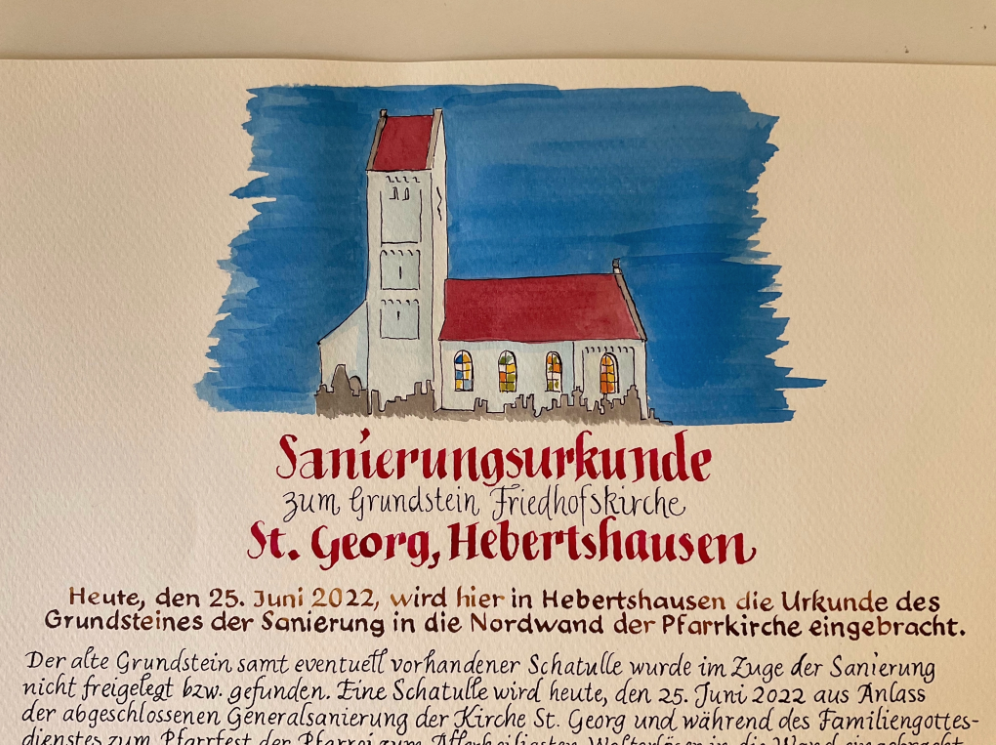 Sanierungsurkunde
zum Grundstein Friedhofskirche
St. Georg, Hebertshausen
Heute, den 25. Juni 2022, wird hier in Hebertshausen die Urkunde des
Grundsteines der Sanierung in die Nordwand der Pfarrkirche eingebracht.
Der alte Grundstein samt eventuell vorhandener Schatulle wurde im Zuge der Sanierung
nicht freigelegt bzw. gefunden. Eine Schatulle wird heute, den 25. Juni 2022 aus Anlass
der abgeschlossenen Generalsanierung der Kirche St. Georg und während des Familiengottes-
dienstes zum Pfarrfest der Pfarrei zum Allerheiligsten Welterlöser in die Wand eingebracht